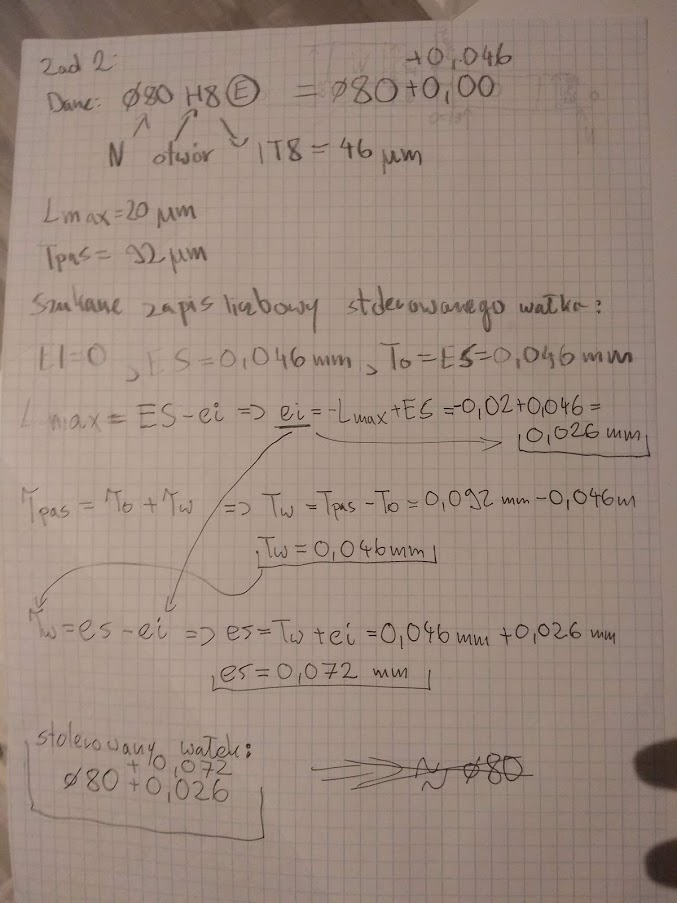 Zad 2:
+0,046
Dane: ø80 H8 Ⓔ = ø80+0,00
N otwór IT8 = 46 μm
Lmax=20 μm
Tpas= 92 μm
Szukane zapis liczbowy stolerowanego wałka:
EI=0, ES=0,046 mm, To=ES=0,046 mm
Lmax= ES-ei => ei=-Lmax+ES=-0,02+0,046=
0,026 mm
Tpas= To+Tw => Tw=Tpas-To=0,092 mm-0,046m
Tw=0,046mm
Tw=es-ei => es=Tw+ei=0,046 mm+0,026 mm
es=0,072 mm
stolerowany wałek:
+0,072
ø80+0,026
N ø80